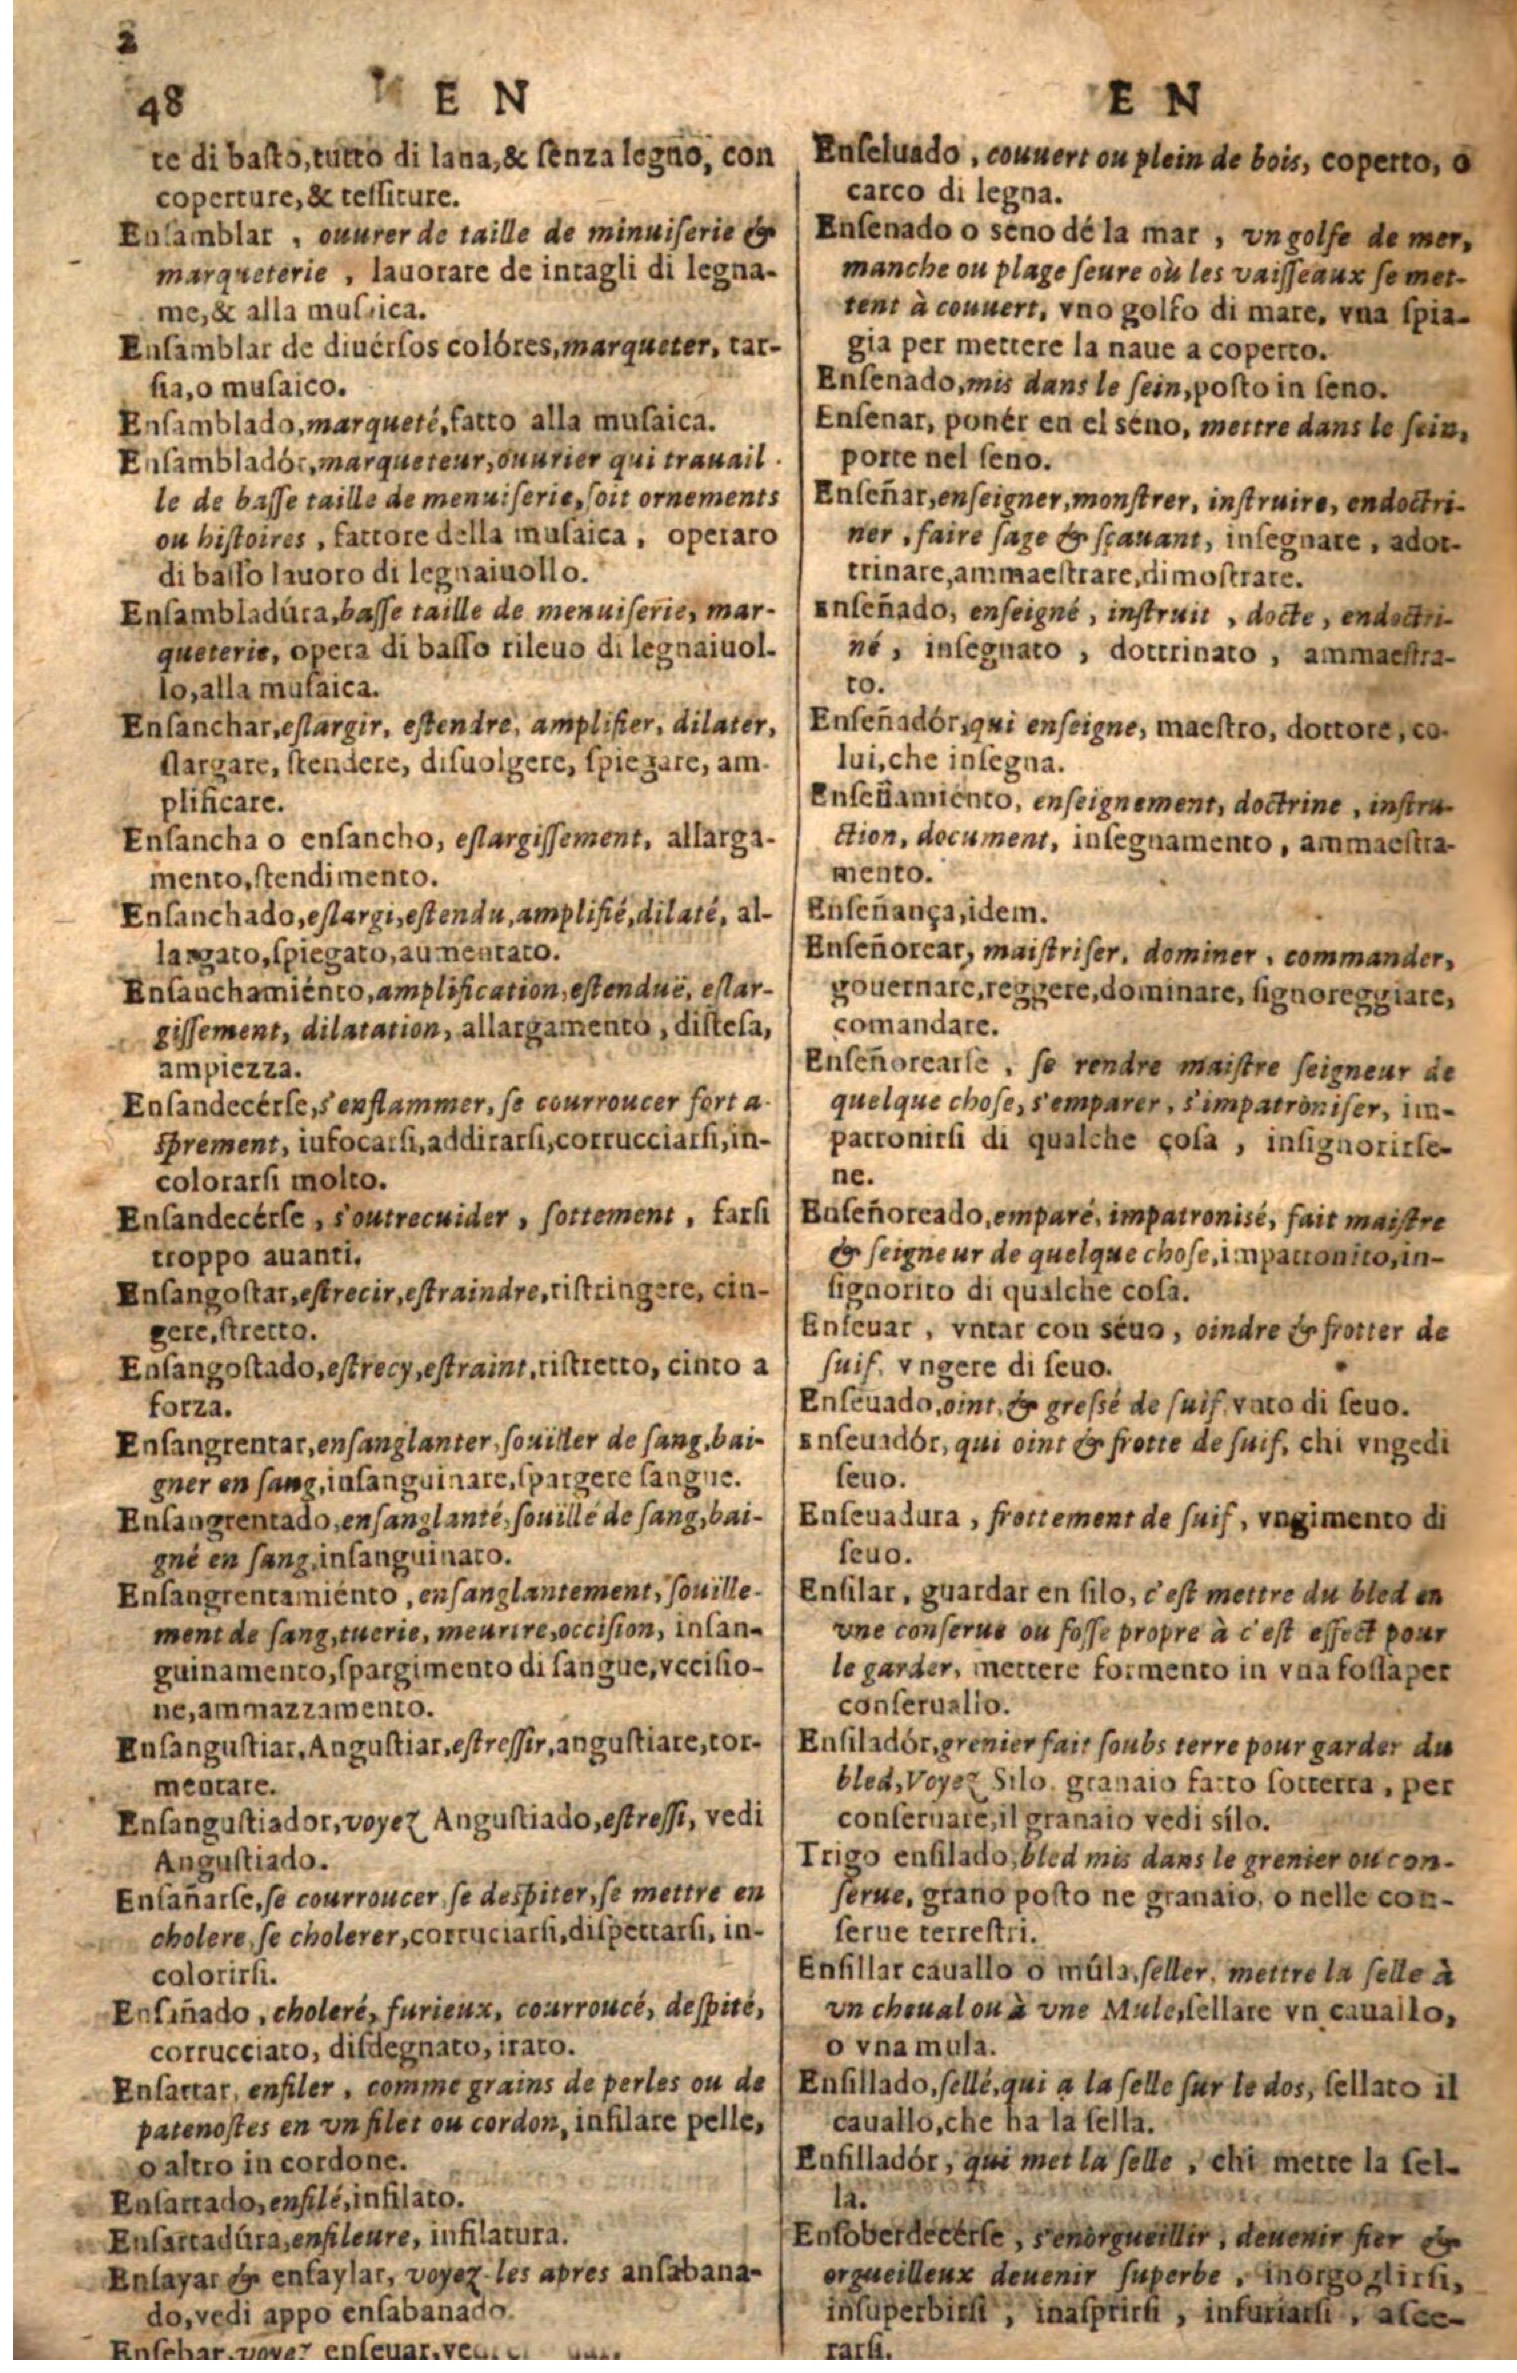 2
48 E N
te di basto,tutto di lana,& ſenza legno, con
coperture,& teſſiture.
Enſamblar , ouurer de taille de minuiſerie &
marqueterie , lauorare de intagli di legna-
me,& alla muſaica.
Enſamblar de diuérſos colóres,marqueter, tar-
ſia,o muſaico.
Enſamblado,marqueté,fatto alla muſaica.
Enſambladór,marqueteur,ouurier qui trauail-
le de baſſe taille de menuiſerie,ſoit ornements
ou hiſtoires , fattore della muſaica , operaro
di baſſo lauoro di legnaiuollo.
Enſambladúra,baſſe taille de menuiſerie, mar-
queterie, opera di baſſo rileuo di legnaiuol-
lo,alla muſaica.
Enſanchar,eſlargir, eſtendre, amplifier, dilater,
ſlargare, ſtendere, diſuolgere, ſpiegare, am-
plificare.
Enſancha o enſancho, eſlargiſſement, allarga-
mento,ſtendimento.
Enſanchado,eſlargi,eſtendu,amplifié,dilaté, al-
largato,ſpiegato,aumentato.
Enſauchamiénto,amplification,eſtenduë, eſlar-
giſſement, dilatation, allargamento , diſteſa,
ampiezza.
Enſandecérſe,s'enflammer, ſe courroucer fort a-
ſprement, iufocarſi,addirarſi,corrucciarſi,in-
colorarſi molto.
Enſandecérſe , s'outrecuider , ſottement , farſi
troppo auanti.
Enſangoſtar,eſtrecir,eſtraindre,riſtringere, cin-
gere,ſtretto.
Enſangoſtado,eſtrecy,eſtraint,riſtretto, cinto a
forza.
Enſangrentar,enſanglanter,ſouïller de ſang,bai-
gner en ſang,inſanguinare,ſpargere ſangue.
Enſangrentado,enſanglanté,ſouïllé de ſang,bai-
gné en ſang,inſanguinato.
Enſangrentamiénto , enſanglantement, ſouille-
ment de ſang,tuerie, meurtre,occiſion, inſan-
guinamento,ſpargimento di ſangue,vcciſio-
ne,ammazzamento.
Enſanguſtiar,Anguſtiar,eſtreſſir,anguſtiare,tor-
mentare.
Enſanguſtiador,voyez Anguſtiado,eſtreſſi, vedi
Anguſtiado.
Enſañarſe,ſe courroucer,ſe deſpiter,ſe mettre en
cholere,ſe cholerer,corruciarſi,diſpettarſi, in-
colorirſi.
Enſañado , choleré, furieux, courroucé, deſpité,
corrucciato, diſdegnato, irato.
Enſartar, enfiler , comme grains de perles ou de
patenoſtes en vn filet ou cordon, infilare pelle,
o altro in cordone.
Enſartado,enfilé,infilato.
Enſartadúra,enfileure, infilatura.
Enſayar & enſaylar, voyez les apres anſabana-
do,vedi appo enſabanado.
Enſebar,voyez enſeuar,
E N
Enſeluado , couuert ou plein de bois, coperto, o
carco di legna.
Enſenado o seno dé la mar , vn golfe de mer,
manche ou plage ſeure où les vaiſſeaux ſe met-
tent à couuert, vno golfo di mare, vna ſpia-
gia per mettere la naue a coperto.
Enſenado,mis dans le ſein,poſto in ſeno.
Enſenar, ponér en el séno, mettre dans le ſein,
porte nel ſeno.
Enſeñar,enſeigner,monſtrer, inſtruire, endoctri-
ner , faire ſage & ſçauant, inſegnare , adot-
trinare,ammaeſtrare,dimoſtrare.
Enſeñado, enſeigné , inſtruit , docte , endoctri-
né , inſegnato , dottrinato , ammaeſtra-
to.
Enſeñadór,qui enſeigne, maeſtro, dottore, co-
lui,che inſegna.
Enſeñamiénto, enſeignement, doctrine , inſtru-
ction, document, inſegnamento, ammaeſtra-
mento.
Enſeñança,idem.
Enſeñorear, maiſtriſer, dominer , commander,
gouernare,reggere,dominare, ſignoreggiare,
comandare.
Enſeñorearſe , ſe rendre maiſtre ſeigneur de
quelque choſe, s'emparer , s'impatroniſer, im-
patronirſi di qualche çoſa , inſignorirſe-
ne.
Enſeñoreado,emparé, impatronisé, fait maiſtre
& ſeigneur de quelque choſe,impatronito,in-
ſignorito di qualche coſa.
Enſeuar , vntar con séuo , oindre & frotter de
ſuif, vngere di ſeuo.
Enſeuado,oint, & greſsé de ſuif, vnto di ſeuo.
Enſeuadór, qui oint & frotte de ſuif, chi vngedi
ſeuo.
Enſeuadura , frottement de ſuif, vngimento di
ſeuo.
Enſilar , guardar en ſilo, c'eſt mettre du bled en
vne conſerue ou foſſe propre à c'eſt effect pour
le garder, mettere formento in vna foſſa per
conſeruallo.
Enſiladór,grenier fait ſoubs terre pour garder du
bled,Voyez Silo, granaio fatto ſotterra , per
conſeruare,il granaio vedi sílo.
Trigo enſilado,bled mis dans le grenier ou con-
ſerue, grano poſto ne granaio, o nelle con-
ſerue terreſtri.
Enſillar cauallo o múla,ſeller, mettre la ſelle à
vn cheual ou à vne Mule,ſellare vn cauallo,
o vna mula.
Enſillado,ſellé,qui a la ſelle ſur le dos, ſellato il
cauallo,che ha la ſella.
Enſilladór, qui met la ſelle , chi mette la ſel-
la.
Enſoberdecérſe , s'enorgueillir , deuenir fier &
orgueilleux deuenir ſuperbe , inorgoglirſi,
inſuperbirſi , inaſprirſi , infuriarſi , afce-
rarſi.